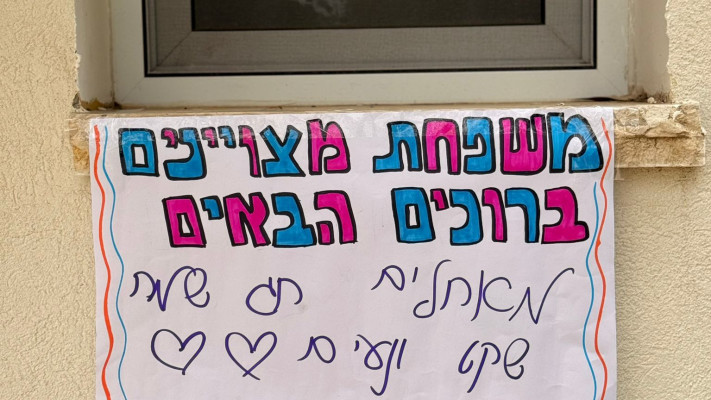 משפחת מצויינים
ברוכים הבאים
מאחלים חג שמח
שקט ונעים ♡ ♡